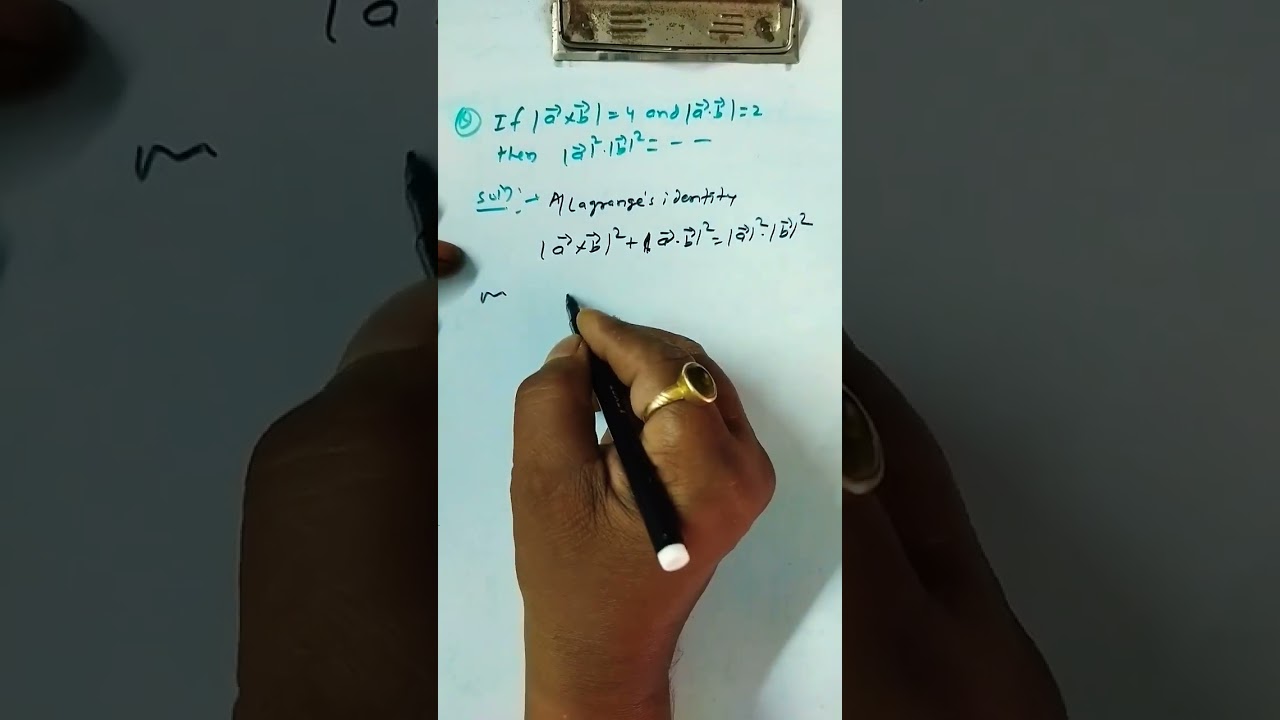 Q If |a⃗×b⃗|=4 and |a⃗.b⃗|=2
then |a⃗|².|b⃗|²= – –
Soln:- A/Lagrange's identity
|a⃗×b⃗|²+|a⃗.b⃗|²=|a⃗|².|b⃗|²